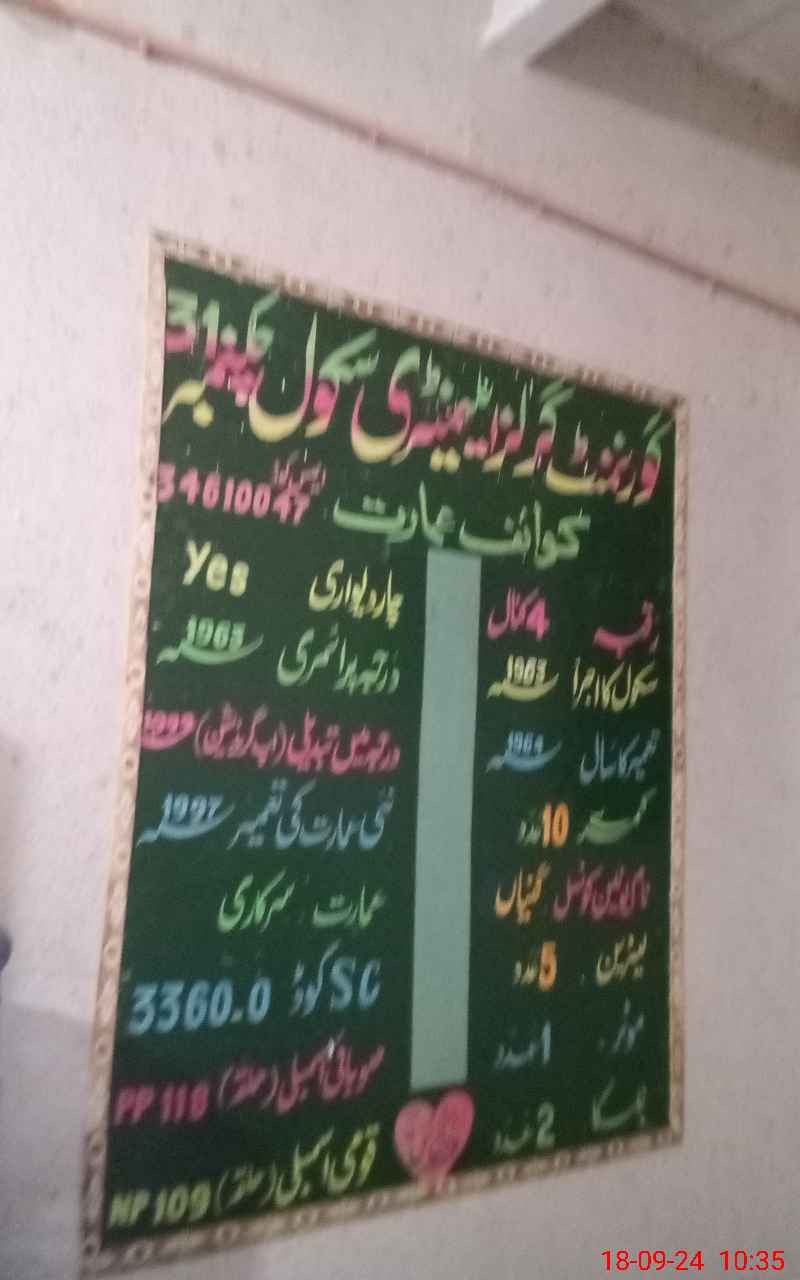 گورنمنٹ گرلز ایلیمنٹری سکول چک نمبر 31
ایمس کوڈ 34610047
کوائف عمارت
رقبہ 4 کنال
سکول کا اجرا 1963
تعمیر کا سال 1964
کمرے 10 عدد
نام یونین کونسل
لیٹرین 5 عدد
موٹر 1 عدد
نلکا 2 عدد
چاردیواری Yes
درجہ پرائمری 1963
درجہ میں تبدیلی (اپ گریڈیشن) 1989
نئی عمارت کی تعمیر 1997
عمارت سرکاری
SC کوڈ 3360.0
صوبائی اسمبلی (حلقہ) PP 118
قومی اسمبلی (حلقہ) NP 109
18-09-24 10:35